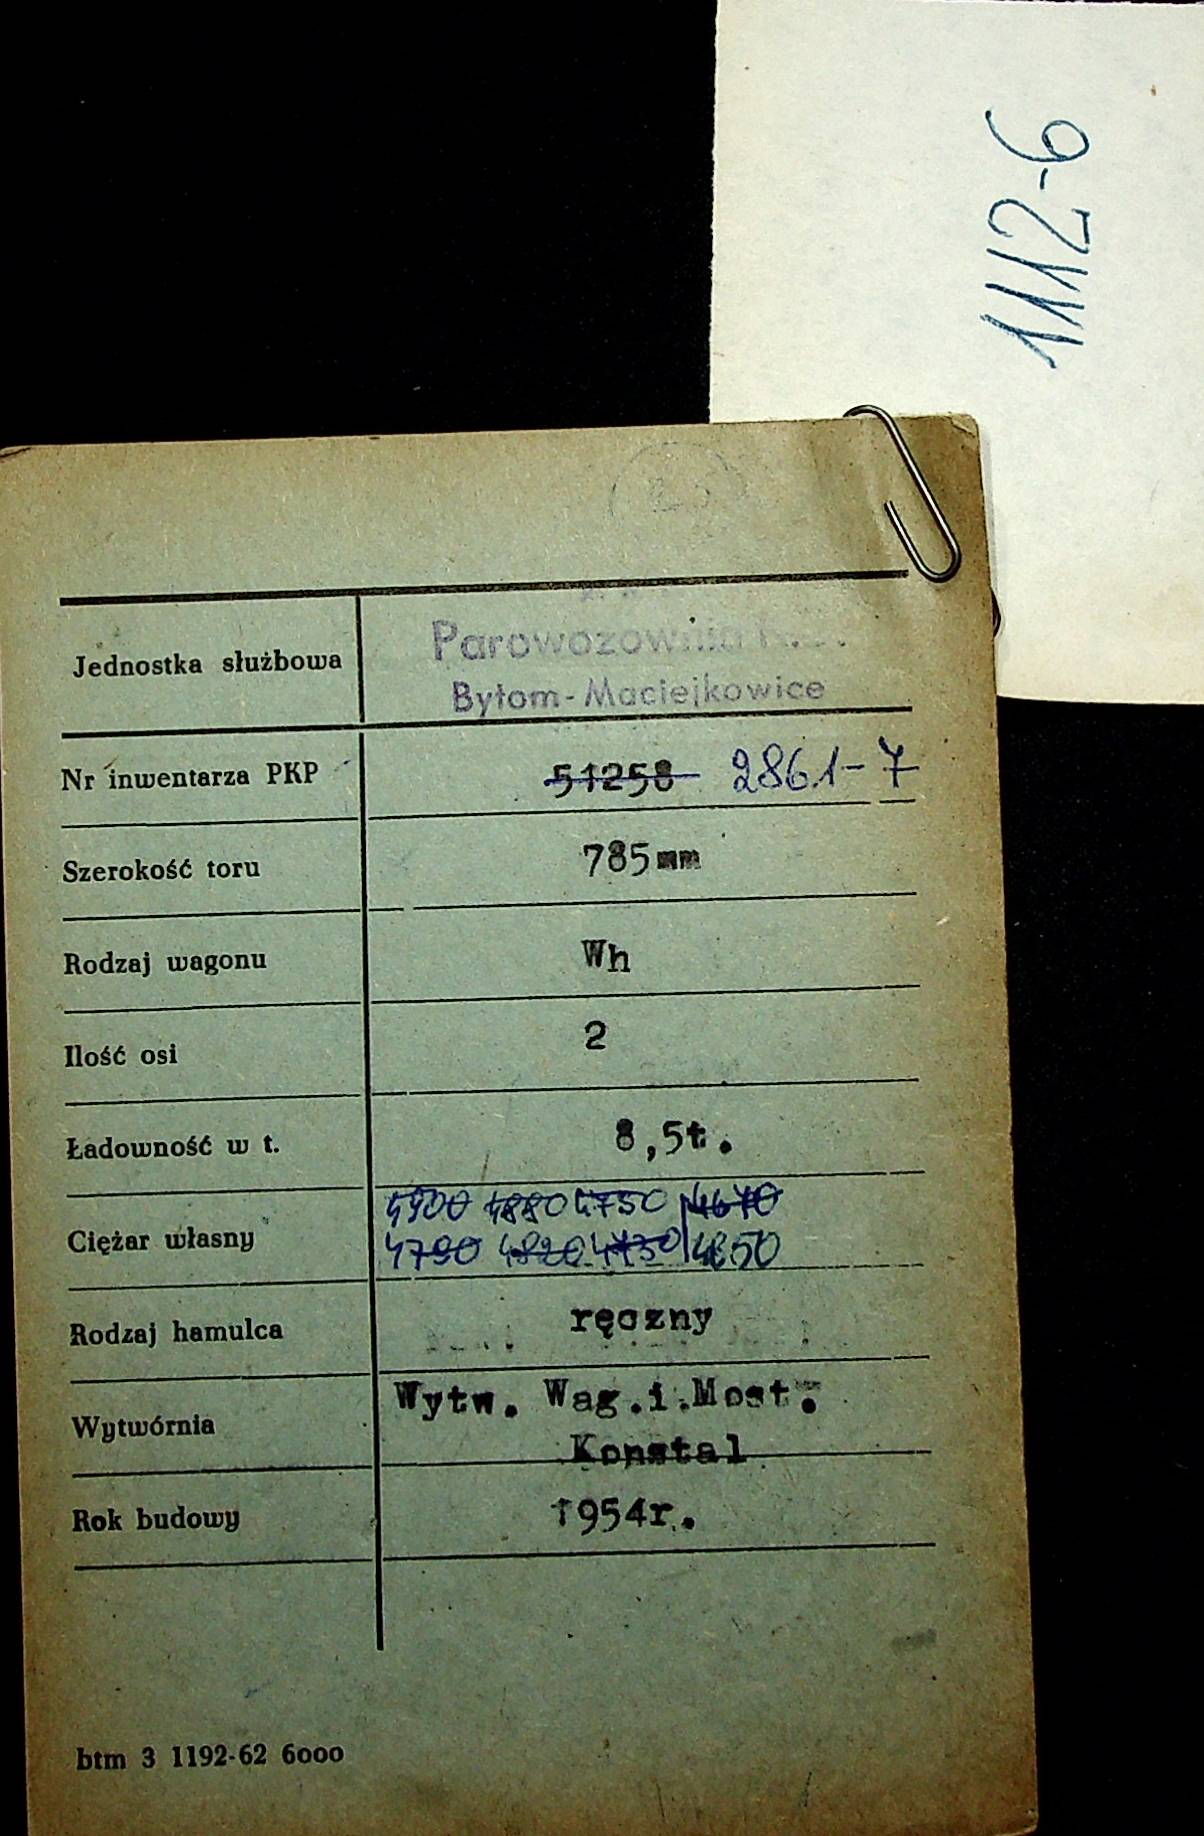 1112-6
Jednostka służbowa
Parowozownia
Bytom-Maciejkowice
Nr inwentarza PKP 51258 2861-7
Szerokość toru 785mm
Rodzaj wagonu Wh
Ilość osi 2
Ładowność w t. 8,5t.
4900 4880 4750 4670
Ciężar własny
4790 4820 4730 4850
Rodzaj hamulca ręczny
Wytw. Wag.i.Most.
Wytwórnia
Konstal
Rok budowy 1954r.
btm 3 1192-62 6000